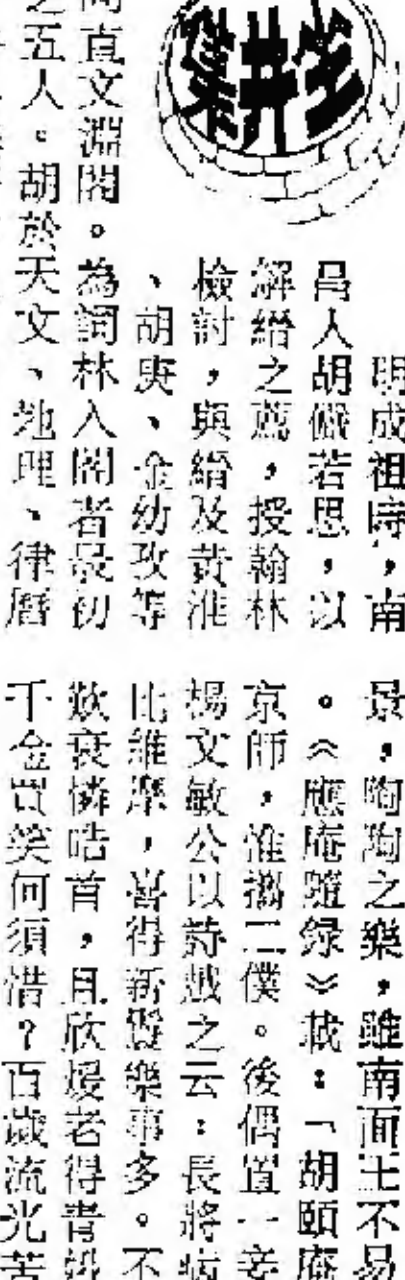 坐井集
明成祖時，南
昌人胡儼若思，以
解縉之薦，授翰林
檢討，與縉及黃淮
、胡廣、金幼孜等
同直文淵閣。為詞林入閣者最初
之五人。胡於天文、地理、律曆
景，陶陶之樂，雖南面王不易
。《應庵隨録》載：「胡頤庵
京師，惟攜二僕。後偶置一妾
楊文敏公以詩戲之云：長將病
比維摩，喜得新醫樂事多。不
歎衰憐皓首，且欣媛老得青
千金買笑何須惜？百歲流光苦